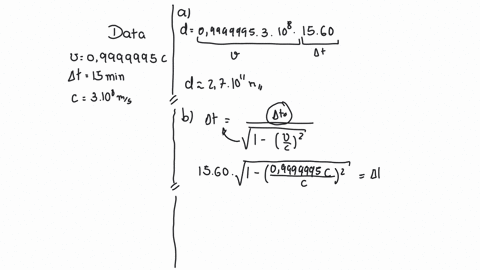 Data
v = 0,9999995 c
Δt = 15 min
c = 3.10⁸ m/s
a)
d = 0,9999995. 3. 10⁸. 15.60
v Δt
d ≈ 2,7.10¹¹ m,,
b) Δt = Δt₀ / √(1 - (v/c)²)
15.60. √(1 - (0,9999995 c/c)²) = Δt